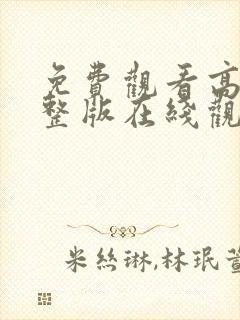 免費觀看高
整版在綫觀
米絲琳,林珉萱